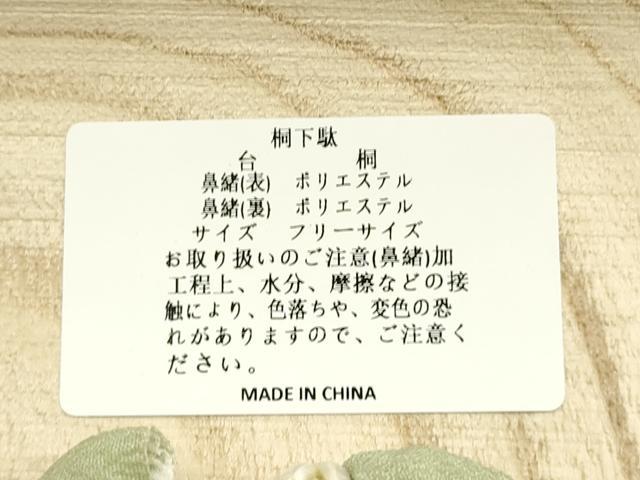 桐下駄
台 桐
鼻緒(表) ポリエステル
鼻緒(裏) ポリエステル
サイズ フリーサイズ
お取り扱いのご注意(鼻緒)加
工程上、水分、摩擦などの接
触により、色落ちや、変色の恐
れがありますので、ご注意く
ださい。
MADE IN CHINA